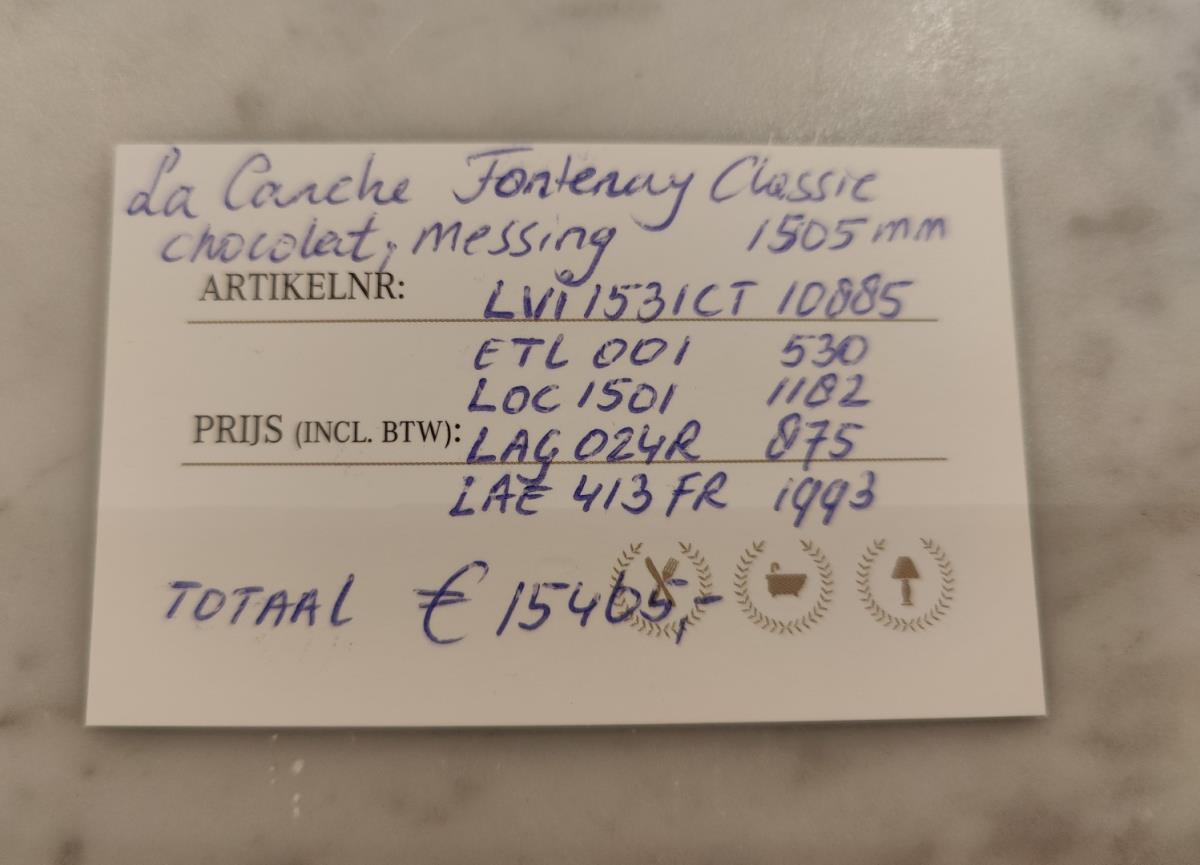 La Canche Fontenay Classic
chocolat, messing 1505 mm
ARTIKELNR: LVI 1531CT 10885
ETL 001 530
LOC 1501 1182
PRIJS (INCL. BTW): LAG 024R 875
LAE 413 FR 1993
TOTAAL € 15465,-